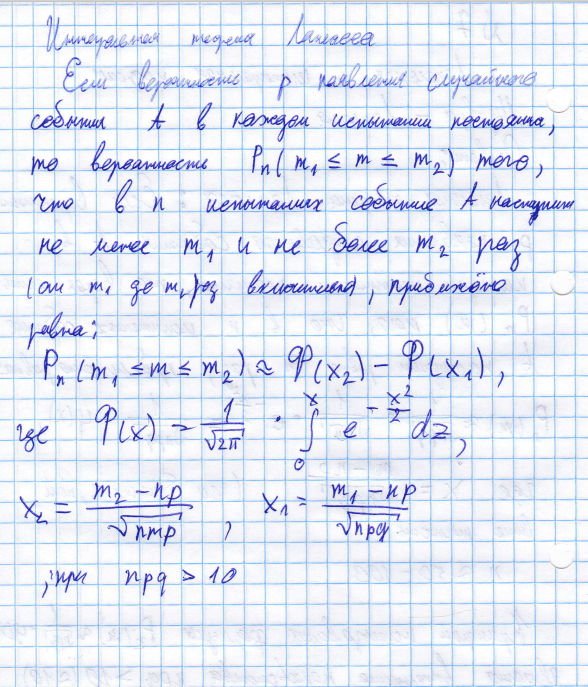 Интегральная теорема Лапласса
Если вероятность p появления случайного
события A в каждом испытании постоянна,
то вероятность Pₙ(m₁ ≤ m ≤ m₂) того,
что в n испытаниях событие A наступит
не менее m₁ и не более m₂ раз
(от m₁ до m₂ раз включительно), приближённо
равна:
Pₙ(m₁ ≤ m ≤ m₂) ≈ Φ(x₂) − Φ(x₁),
где Φ(x) = 1/√2π · ∫₀ˣ e^(−x²/2) dz,
x₂ = (m₂ − np)/√nmp, x₁ = (m₁ − np)/√npq
; при npq > 10